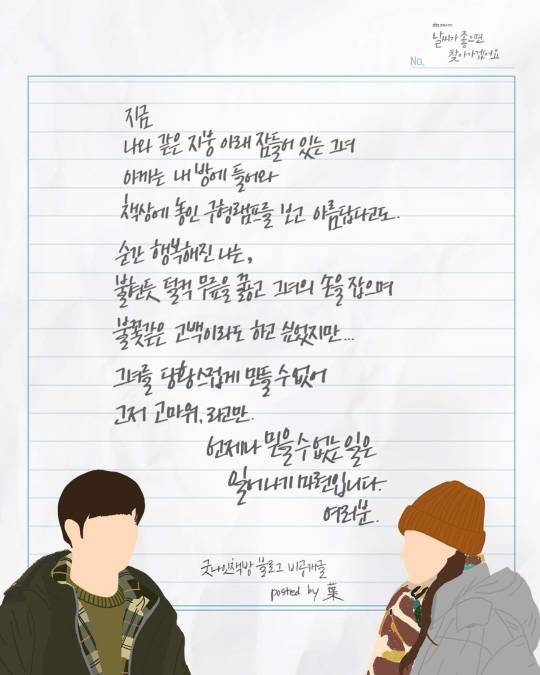 날씨가 좋으면
찾아가겠어요
No.
지금
나와 같은 지붕 아래 잠들어 있는 그녀
아까는 내 방에 들어와
책상에 놓인 구형램프를 보고 아름답다고도.
순간 행복해진 나는,
불현듯 덜컥 무릎을 꿇고 그녀의 손을 잡으며
불꽃같은 고백이라도 하고 싶었지만...
그녀를 당황스럽게 만들 수 없어
그저 고마워, 라고만.
언제나 믿을 수 없는 일은
일어나기 마련입니다.
여러분.
굿나잇책방 블로그 비공개글
posted by 葉